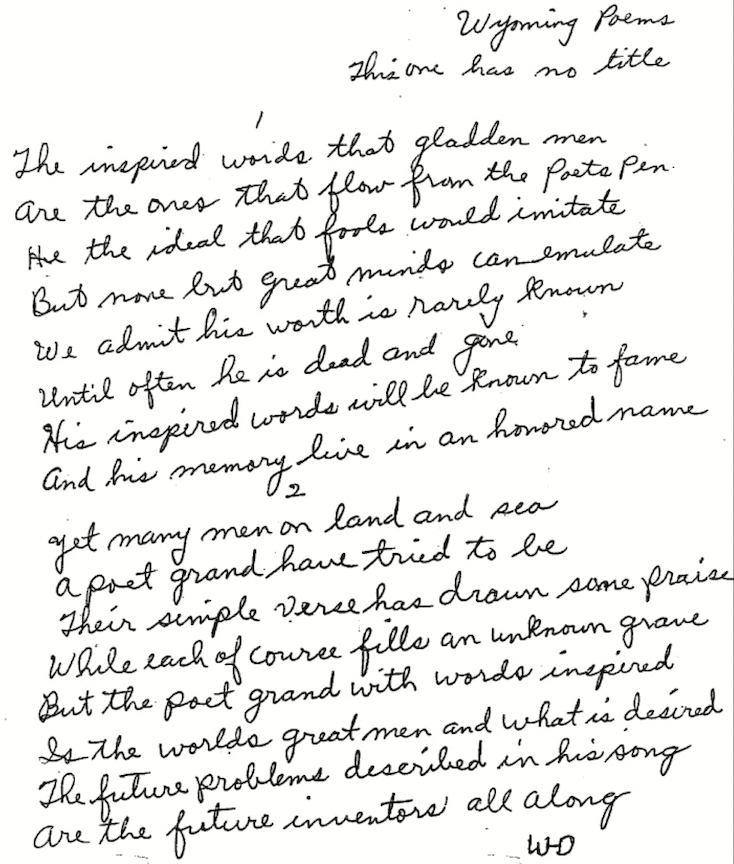 Wyoming Poems
This one has no title
1
The inspired words that gladden men
Are the ones that flow from the Poets Pen.
He the ideal that fools would imitate
But none but great minds can emulate
We admit his worth is rarely known
Until often he is dead and gone
His inspired words will be known to fame
And his memory live in an honored name
2
yet many men on land and sea
a poet grand have tried to be
Their simple verse has drawn some praise
While each of course fills an unknown grave
But the poet grand with words inspired
Is the worlds great men and what is desired
The future problems described in his song
are the future inventors all along
WD